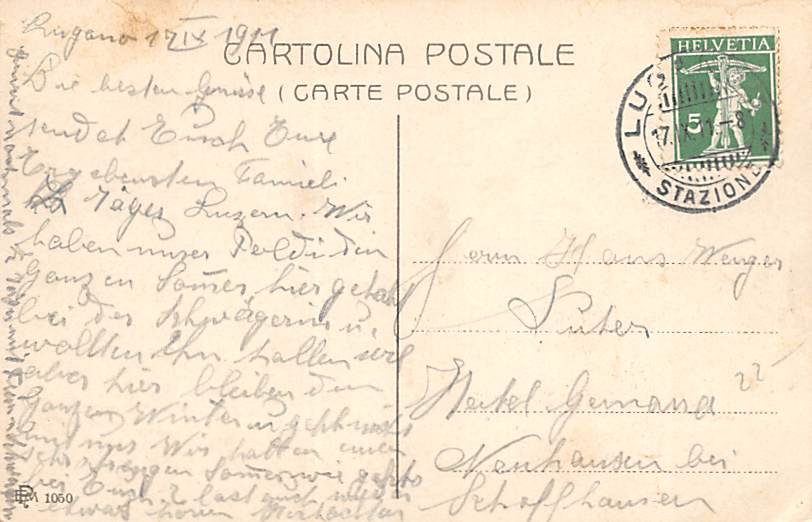 Lugano 17 IX 1911
CARTOLINA POSTALE
(CARTE POSTALE)
Die besten Grüsse
sendet Euch Eure
Ergebensten Famieli
Jäger Luzern. Wir
haben unser Poldi den
Ganzen Somer hier gehabt
bei der Schwägerin u.
wollten Ihn hollen will
aber hier bleiben den
Ganzen Winter u geht nicht
mit uns Wir hatten einen
sehr Somer wie geht's
bei Euch? last auch wieder
etwas hören
HELVETIA
5
LUGANO
17.IX.11.-8
STAZIONE
Herrn Hans Wenger
Suter
Neuhausen bei
Schaffhausen
22
1050